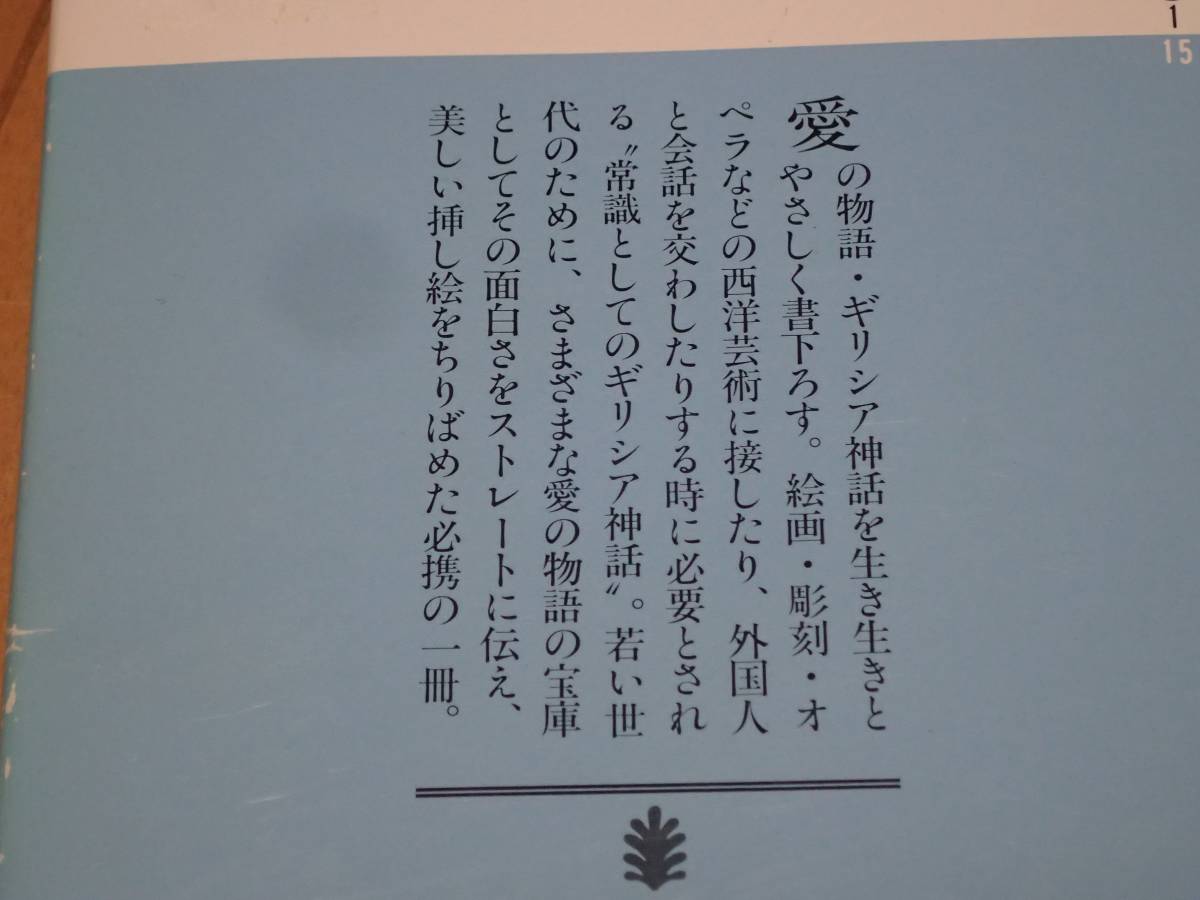 愛の物語・ギリシア神話を生き生きと
やさしく書下ろす。絵画・彫刻・オ
ペラなどの西洋芸術に接したり、外国人
と会話を交わしたりする時に必要とされ
る〝常識としてのギリシア神話〟。若い世
代のために、さまざまな愛の物語の宝庫
としてその面白さをストレートに伝え、
美しい挿し絵をちりばめた必携の一冊。
1
15